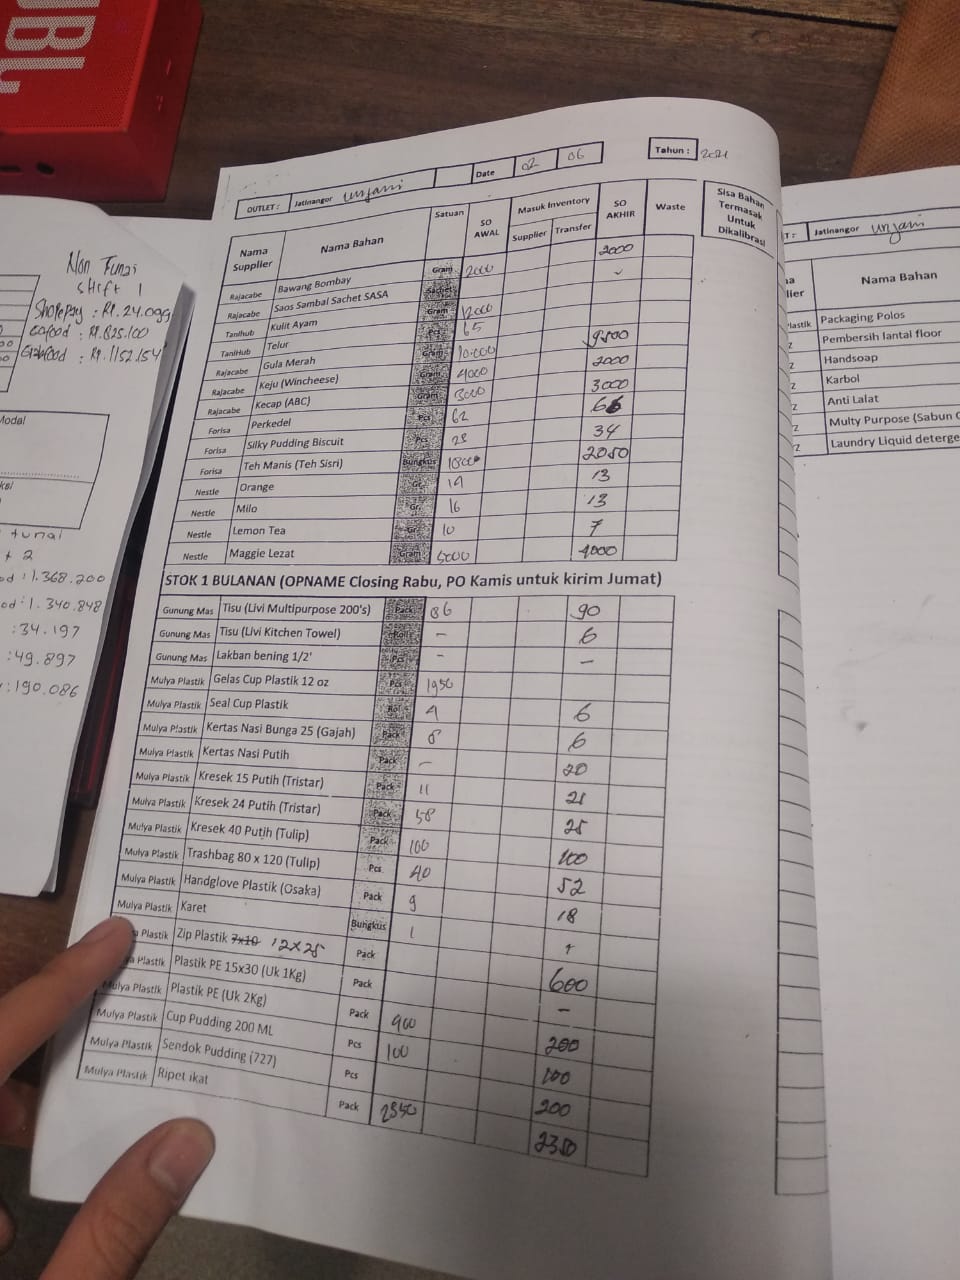 JBL
Non Tunai
shift 1
Shopepay : Rp. 24.099
Gofood : Rp. 825.100
Grabfood : Rp. 1152.154
Modal
tunai
2
od : 1.368.200
od : 1.340.848
: 34.197
: 49.897
: 190.086
OUTLET : Jatinangor unjani Date 02 06 Tahun :
Nama Supplier Nama Bahan Satuan SO AWAL Masuk Inventory Supplier Transfer SO AKHIR Waste Sisa Bahan Termasak Untuk Dikalibrasi
Rajacabe Bawang Bombay Gram 2000 2000
Rajacabe Saos Sambal Sachet SASA Sachet
TaniHub Kulit Ayam Gram 12000
TaniHub Telur Pcs 65
Rajacabe Gula Merah Gram 10.000 9500
Rajacabe Keju (Wincheese) Gram 4000 2000
Rajacabe Kecap (ABC) Gram 3000 3000
Forisa Perkedel Pcs 62 66
Forisa Silky Pudding Biscuit Pcs 28 34
Forisa Teh Manis (Teh Sisri) Bungkus 2050
Nestle Orange Gr. 19 13
Nestle Milo Gr. 16 13
Nestle Lemon Tea Gr. 10 7
Nestle Maggie Lezat Gram 5000 4000
STOK 1 BULANAN (OPNAME Closing Rabu, PO Kamis untuk kirim Jumat)
Gunung Mas Tisu (Livi Multipurpose 200's) Pack 86 90
Gunung Mas Tisu (Livi Kitchen Towel) Rolls - 6
Gunung Mas Lakban bening 1/2' Pcs - -
Mulya Plastik Gelas Cup Plastik 12 oz Pcs 1950
Mulya Plastik Seal Cup Plastik Roll 4 6
Mulya Plastik Kertas Nasi Bunga 25 (Gajah) Pack 8 6
Mulya Plastik Kertas Nasi Putih Pack - 20
Mulya Plastik Kresek 15 Putih (Tristar) Pack 11 21
Mulya Plastik Kresek 24 Putih (Tristar) Pack 58 25
Mulya Plastik Kresek 40 Putih (Tulip) Pack 100 100
Mulya Plastik Trashbag 80 x 120 (Tulip) Pcs 40 52
Mulya Plastik Handglove Plastik (Osaka) Pack 9 18
Mulya Plastik Karet Bungkus 1
Plastik Zip Plastik 7x10 12x25 Pack 600
Plastik Plastik PE 15x30 (Uk 1Kg) Pack -
Mulya Plastik Plastik PE (Uk 2Kg) Pack 900 200
Mulya Plastik Cup Pudding 200 ML Pcs 100 100
Mulya Plastik Sendok Pudding (727) Pcs 200
Mulya Plastik Ripet ikat Pack 2350 2350
Jatinangor unjani
Nama Bahan
Packaging Polos
Pembersih lantai floor
Handsoap
Karbol
Anti Lalat
Multy Purpose (Sabun
Laundry Liquid deterge